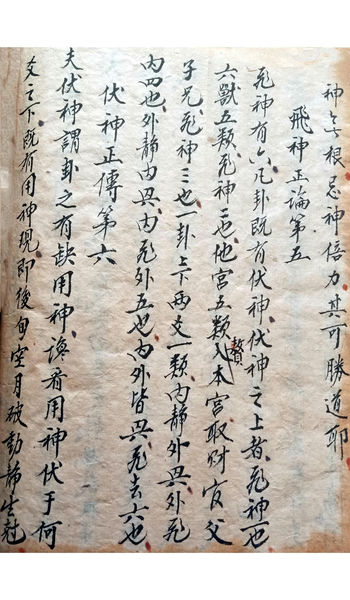 神無根忌神倍力其可勝道耶
飛神正論第五
飛神有六凡卦既有伏神伏神之上者飛神一也
六獸五類飛神二也他宮五類入贅本宮取財官父
子兄飛神三也一卦上下两爻一類内静外㒷外飛
内四也外静内㒷内飛外五也内外皆㒷飛去六也
伏神正傳第六
夫伏神謂卦之有缺用神終看用神伏于何
爻之下既有用神現即後旬空月破動静生尅